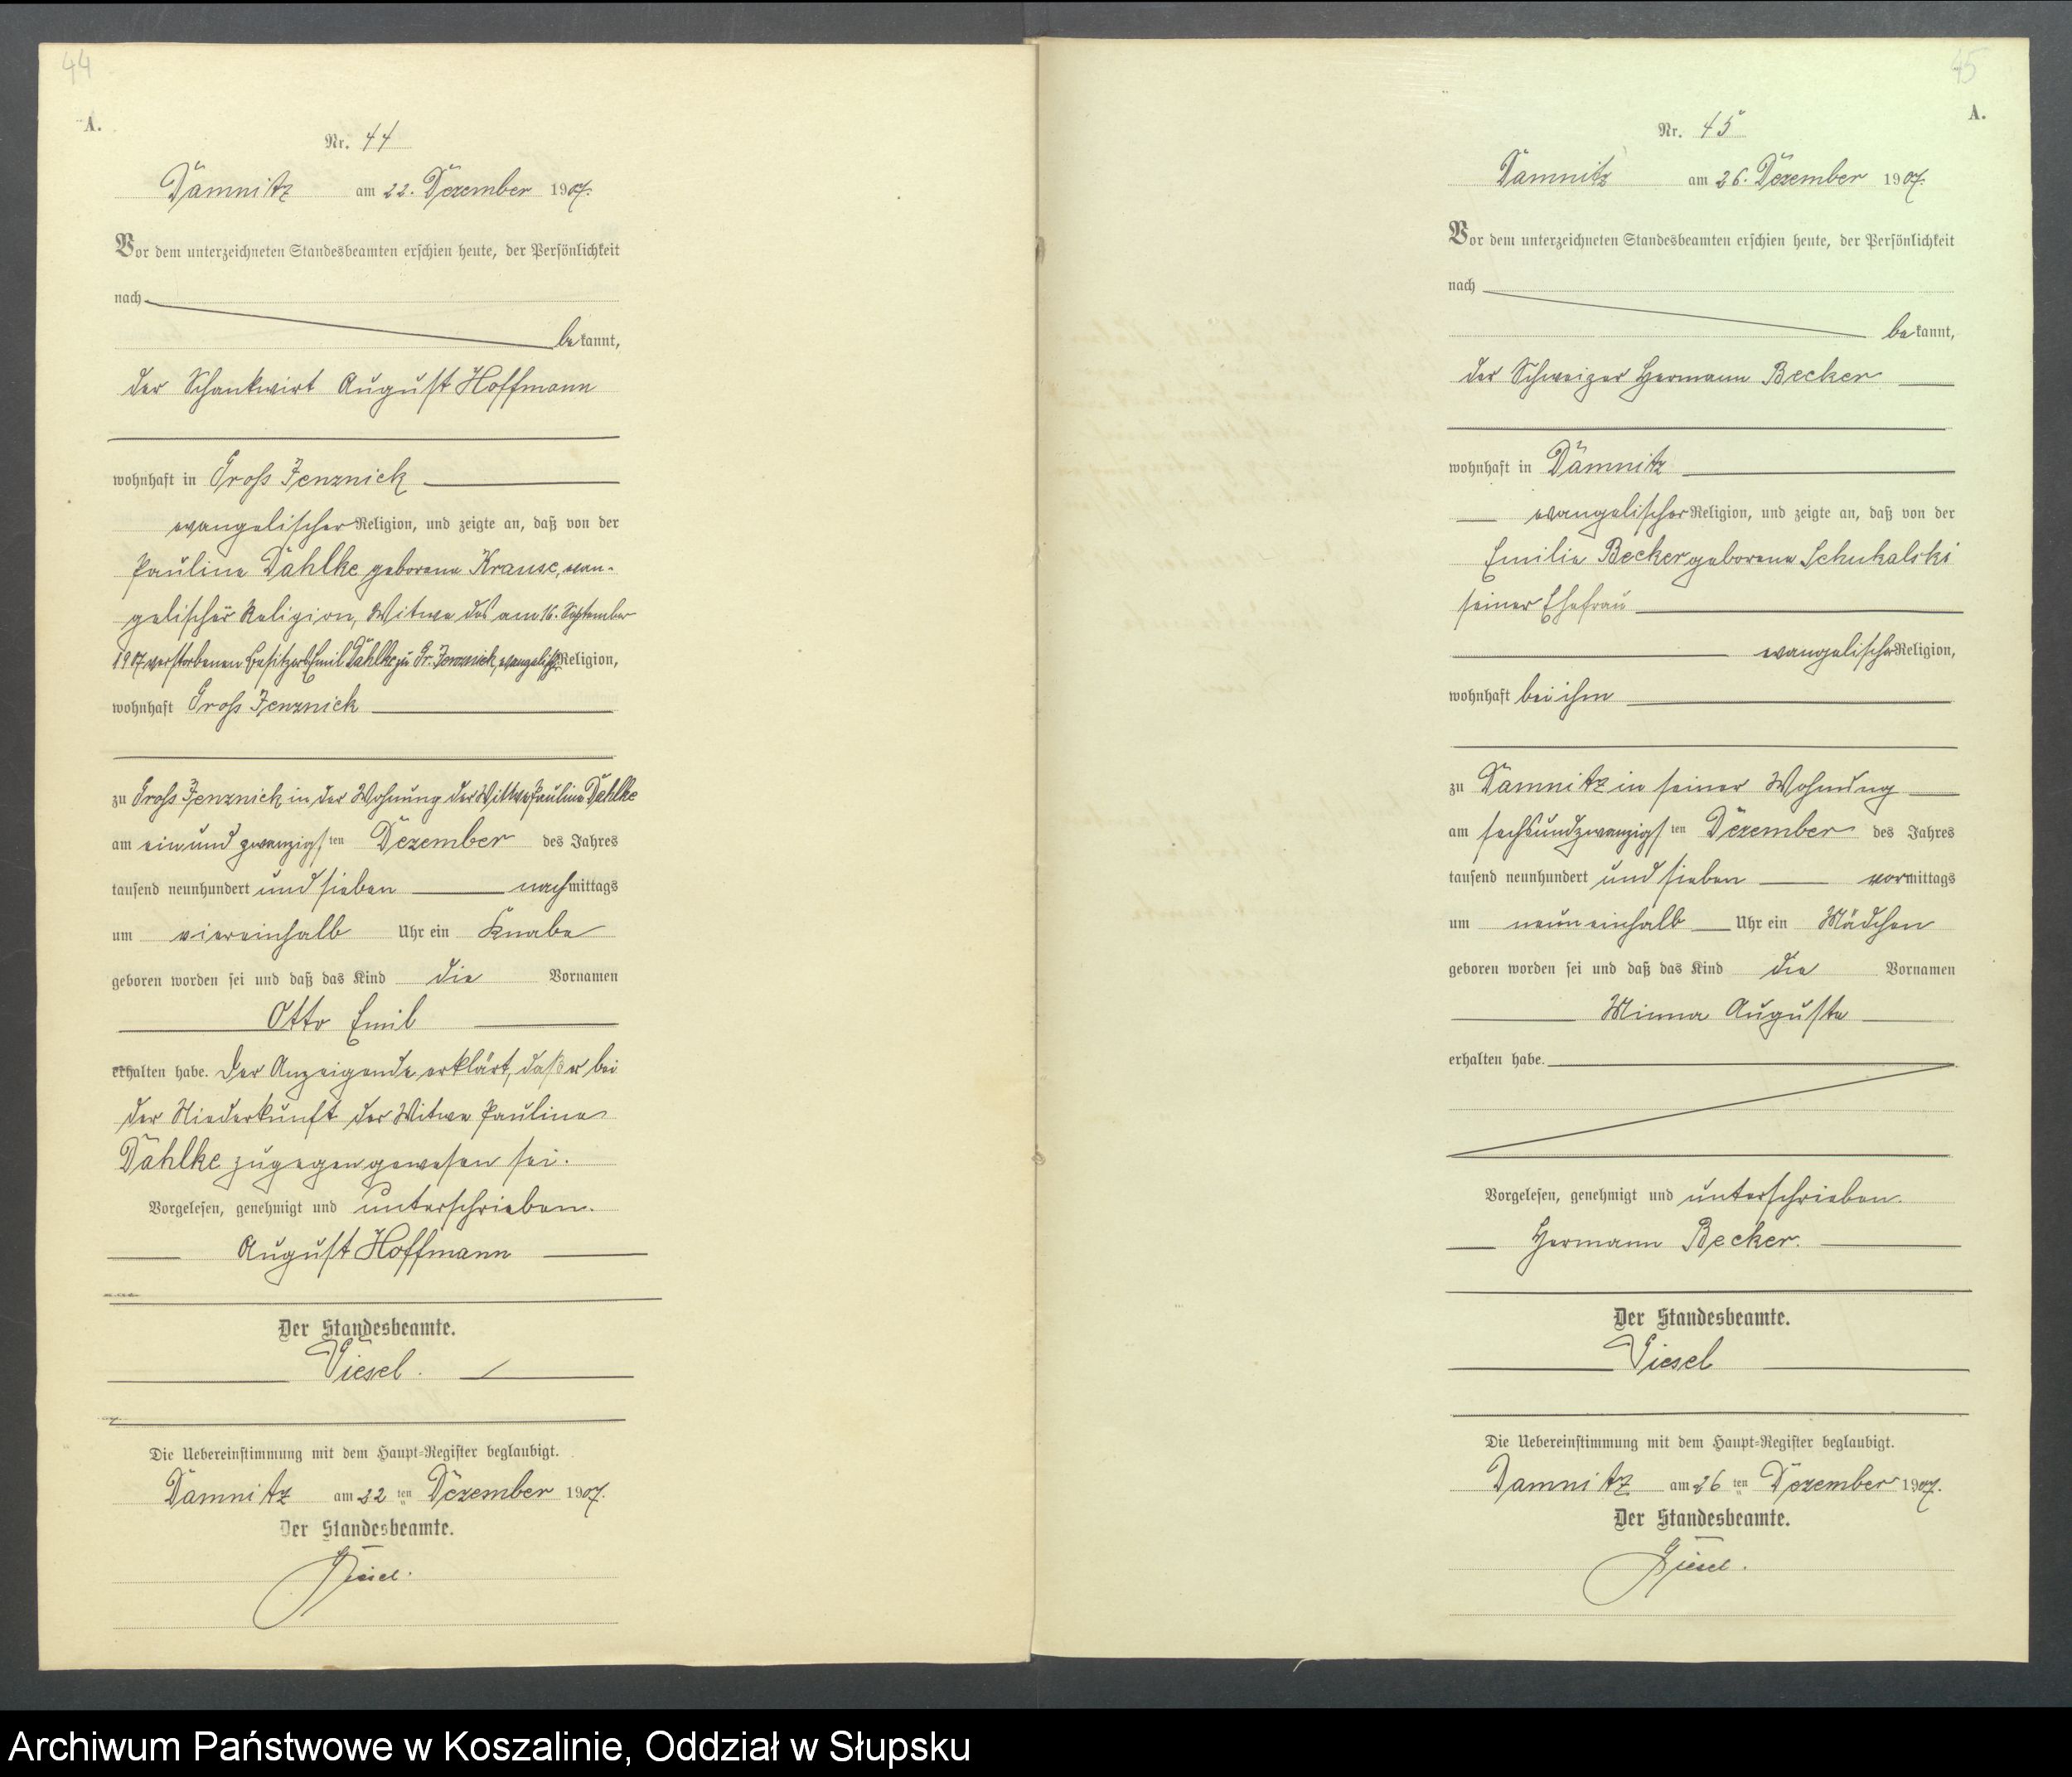 44
A.
Nr. 44
Damnitz am 22. Dezember 1907.
Vor dem unterzeichneten Standesbeamten erschien heute, der Persönlichkeit
nach
bekannt,
der Schankwirt August Hoffmann
wohnhaft in Gross Jenznick
evangelischer Religion, und zeigte an, daß von der
Pauline Dahlke geborene Krause, evan-
gelischer Religion, Witwe des am 16. September
1907 verstorbenen Besitzers Emil Dahlke zu Gr. Jenznick, evangelisch Religion,
wohnhaft Gross Jenznick
zu Gross Jenznick in der Wohnung der Witwe Pauline Dahlke
am einundzwanzigsten Dezember des Jahres
tausend neunhundert und sieben nachmittags
um viereinhalb Uhr ein Knabe
geboren worden sei und daß das Kind die Vornamen
Otto Emil
erhalten habe. Der Anzeigende erklärt, daß er bei
der Niederkunft der Witwe Pauline
Dahlke zugegen gewesen sei.
Vorgelesen, genehmigt und unterschrieben.
August Hoffmann
Der Standesbeamte.
Viesel.
Die Uebereinstimmung mit dem Haupt-Register beglaubigt.
Damnitz am 22 ten Dezember 1907.
Der Standesbeamte.
Viesel.
45
A.
Nr. 45
Damnitz am 26. Dezember 1907.
Vor dem unterzeichneten Standesbeamten erschien heute, der Persönlichkeit
nach
bekannt,
der Schweizer Hermann Becker
wohnhaft in Damnitz
evangelischer Religion, und zeigte an, daß von der
Emilie Becker geborene Schukalski
seiner Ehefrau
evangelischer Religion,
wohnhaft bei ihm
zu Damnitz in seiner Wohnung
am sechsundzwanzigsten Dezember des Jahres
tausend neunhundert und sieben vormittags
um neuneinhalb Uhr ein Mädchen
geboren worden sei und daß das Kind die Vornamen
Minna Auguste
erhalten habe.
Vorgelesen, genehmigt und unterschrieben.
Hermann Becker.
Der Standesbeamte.
Viesel
Die Uebereinstimmung mit dem Haupt-Register beglaubigt.
Damnitz am 26 ten Dezember 1907.
Der Standesbeamte.
Viesel.
Archiwum Państwowe w Koszalinie, Oddział w Słupsku